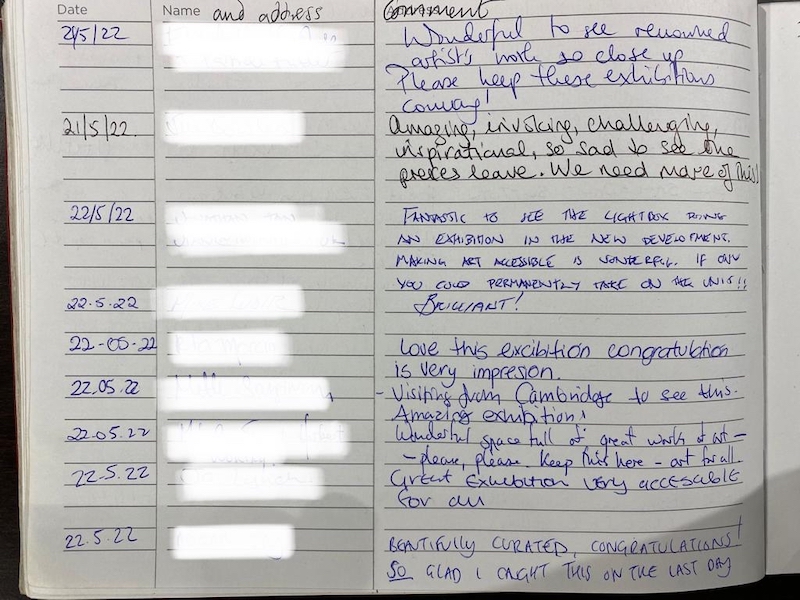 Date Name and address Comment
21/5/22 Wonderful to see renowned
artist's work so close up
Please keep these exhibitions
coming!
21/5/22. Amazing, invoking, challenging,
inspirational, so sad to see the
pieces leave. We need more of this!
22/5/22 FANTASTIC TO SEE THE LIGHTBOX DOING
AN EXHIBITION IN THE NEW DEVELOPMENT.
MAKING ART ACCESSIBLE IS WONDERFUL. IF ONLY
YOU COULD PERMANENTLY TAKE ON THE UNIT!!
22.5.22 BRILLIANT!
22-05-22 Love this excibition congratulation
is very impresion.
22.05.22 - Visiting from Cambridge to see this.
Amazing exhibition!
22.05.22 Wonderful space full of great works of art -
- please, please. Keep this here - art for all
22.5.22 Great Exhibition very accesable
for all
22.5.22 BEAUTIFULLY CURATED, CONGRATULATIONS!
SO GLAD I CAUGHT THIS ON THE LAST DAY